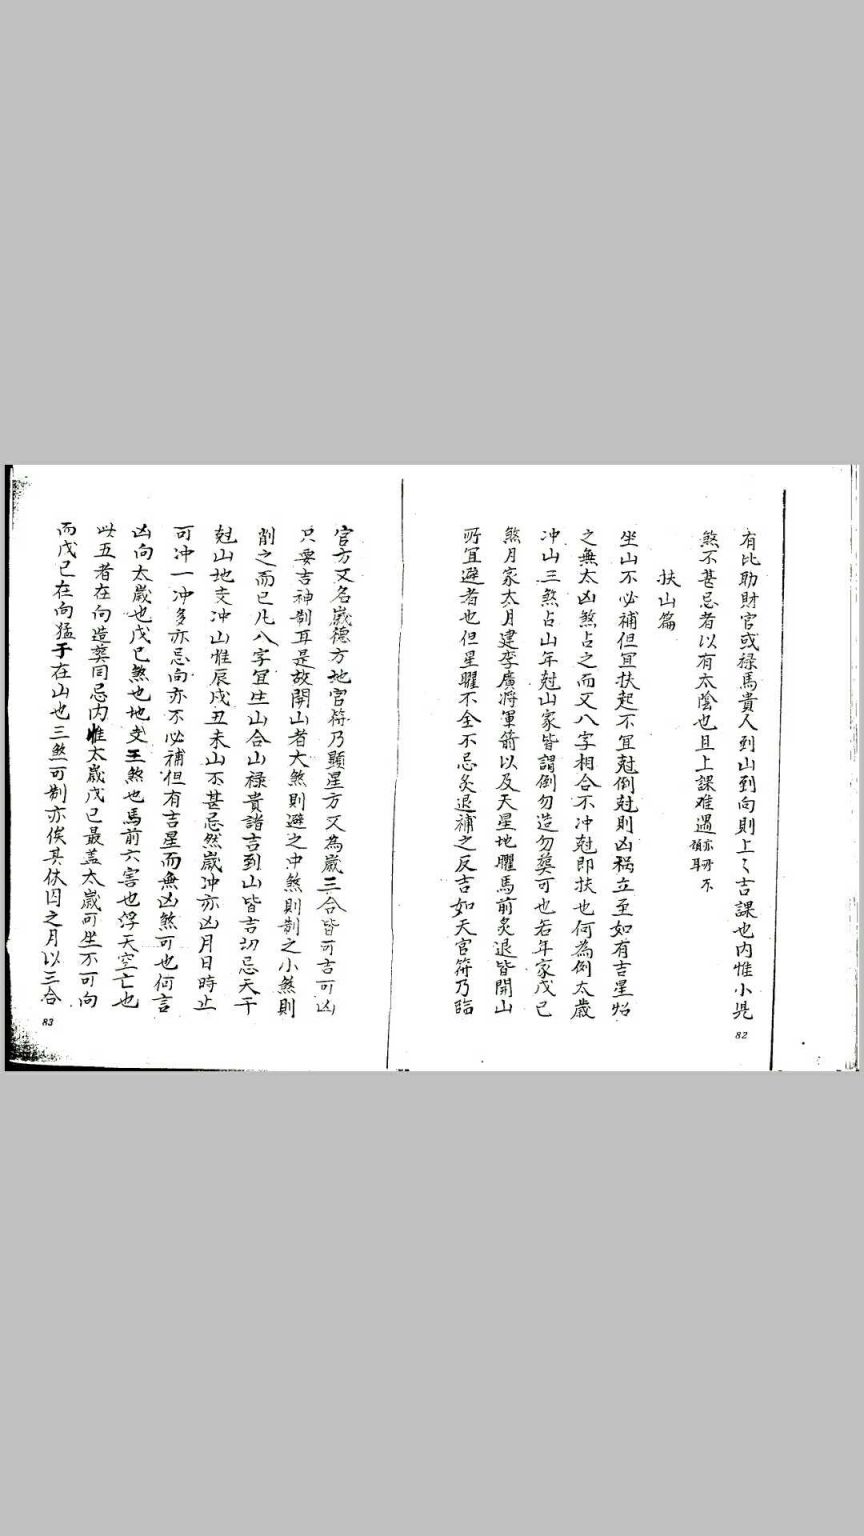 有比助財官或祿馬貴人到山到向則上〻吉課也內惟小児
煞不甚忌者以有太陰也且上課难遇亦所不
須耳
扶山篇
坐山不必補但宜扶起不宜尅倒尅則凶禍立至如有吉星炤
之無太凶煞占之而又八字相合不冲尅即扶也何為倒太歲
冲山三煞占山年尅山家皆謂倒勿造勿塟可也若年家戊己
煞月家太月建李廣將軍箭以及天星地曜馬前炙退皆開山
所宜避者也但星曜不全不忌炙退補之反吉如天官符乃臨
82
官方又名歲德方地官符乃顯星方又為歲三合皆可吉可凶
只要吉神制耳是故開山者大煞則避之中煞則制之小煞則
削之而已凡八字宜生山合山祿貴諸吉到山皆吉切忌天干
尅山地支冲山惟辰戌丑未山不甚忌然歲冲亦凶月日時止
可冲一冲多亦忌向亦不必補但有吉星而無凶煞可也何言
凶向太歲也戊己煞也地支三煞也馬前六害也浮天空亡也
此五者在向造塟同忌內惟太歲戊己最盖太歲可坐不可向
而戊己在向猛于在山也三煞可制亦俟其休囚之月以三合
83